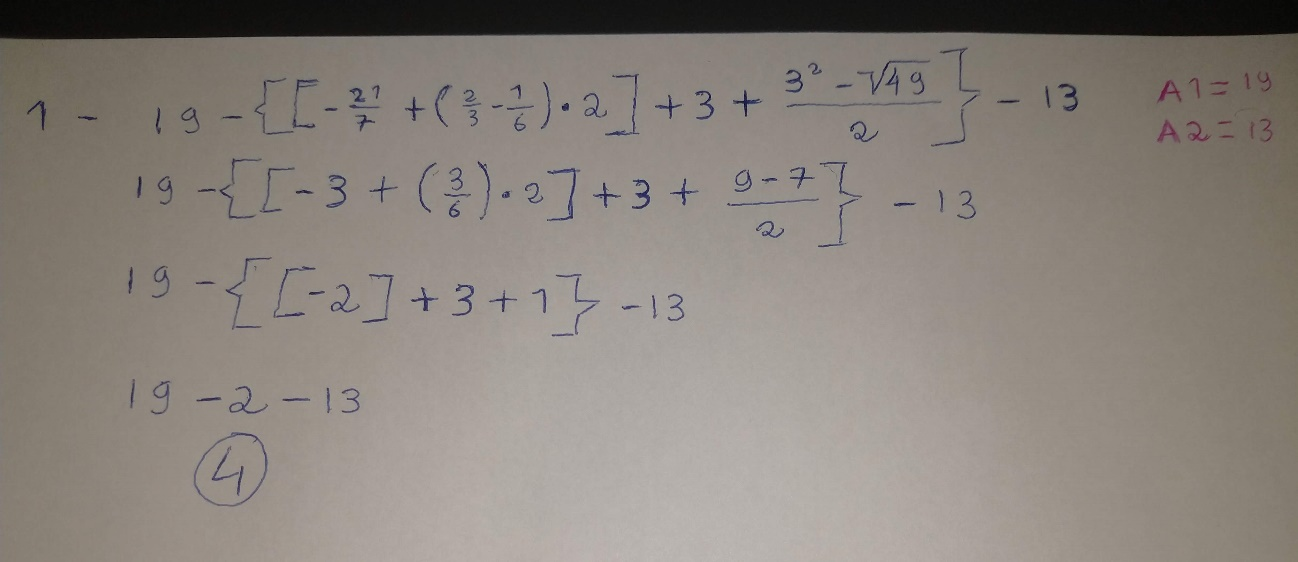 1 - 19 - {[-21/7 + (2/3 - 1/6) • 2] + 3 + (3² - √49)/2} - 13
A1 = 19
A2 = 13
19 - {[-3 + (3/6) • 2] + 3 + (9 - 7)/2} - 13
19 - {[-2] + 3 + 1} - 13
19 - 2 - 13
4